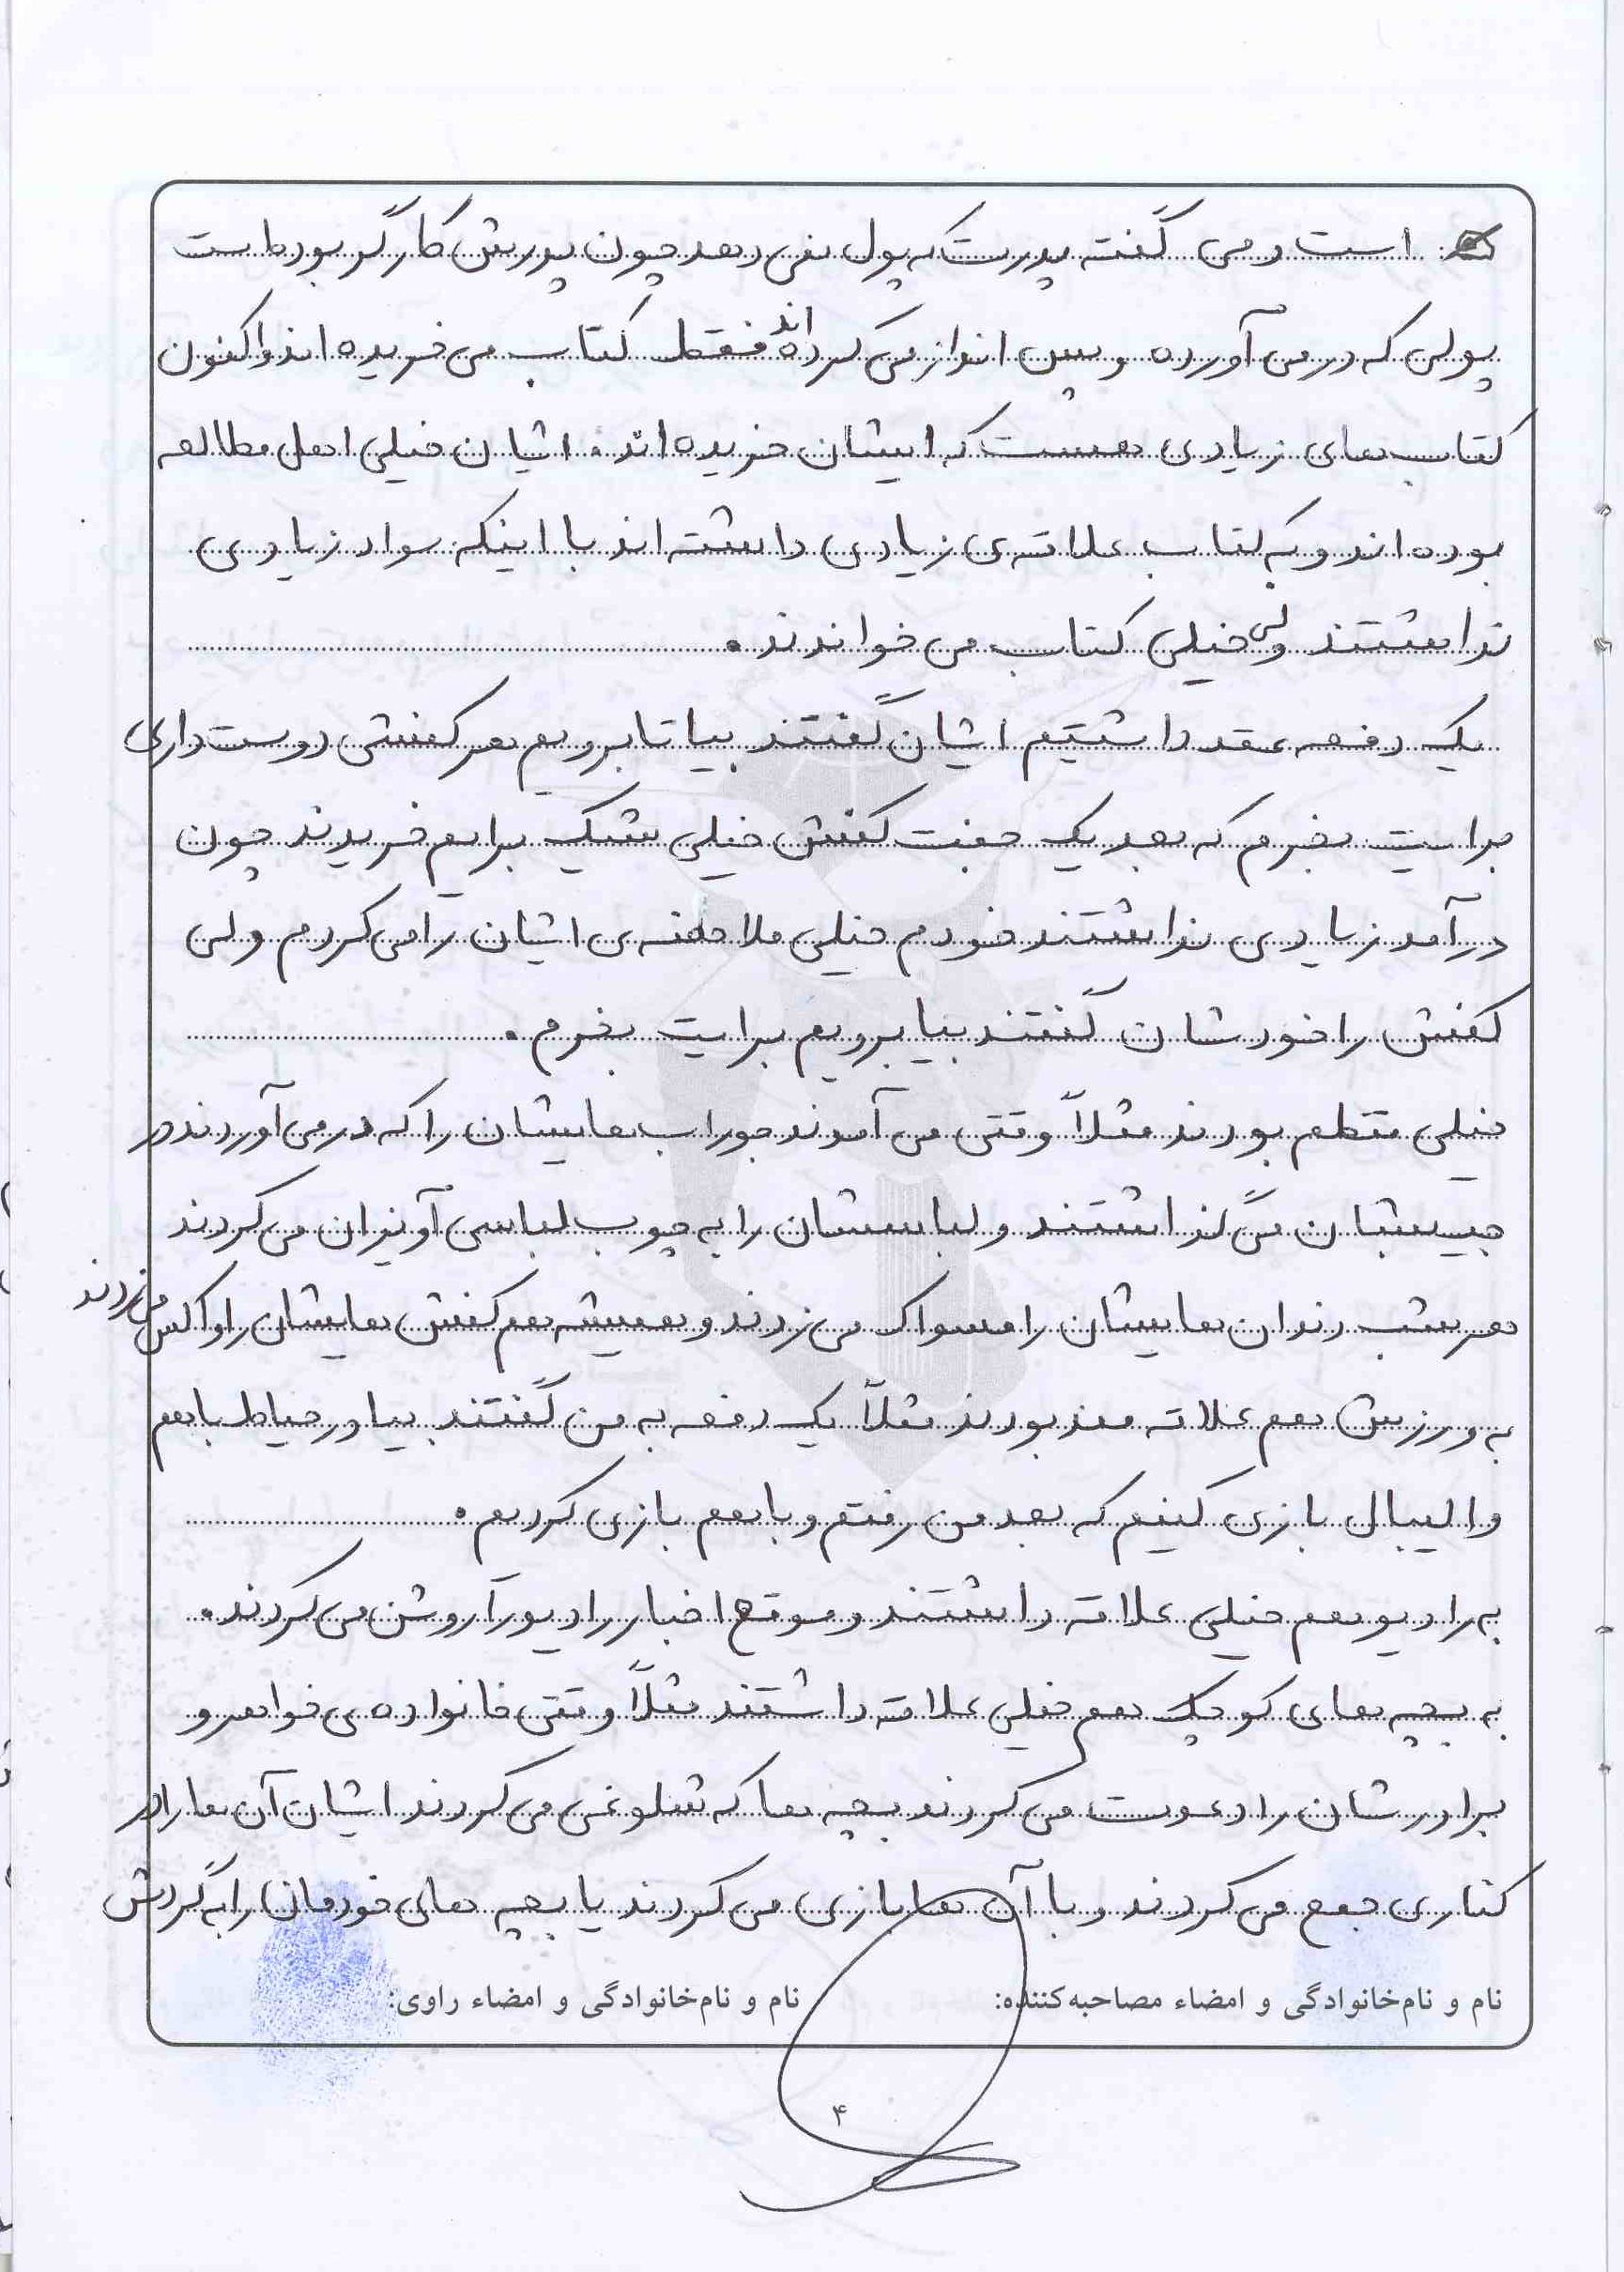 است و می گفته پدرت که پول نمی دهد چون پدرش کارگر بوده است
پولی که در می آورده و پس انداز می کرده اند فقط کتاب می خریده اند و اکنون
کتاب های زیادی هست که ایشان خریده اند. ایشان خیلی اهل مطالعه
بوده اند و به کتاب علاقه ی زیادی داشته اند با اینکه سواد زیادی
نداشتند ولی خیلی کتاب می خواندند.
یک دفعه عقد داشتیم ایشان گفتند بیا تا برویم هر کفشی دوست داری
برایت بخرم که بعد یک جفت کفش خیلی شیک برایم خریدند چون
درآمد زیادی نداشتند خودم خیلی ملاحظه ی ایشان را می کردم ولی
کفش را خودشان گفتند بیا برویم برایت بخرم.
خیلی منظم بودند مثلاً وقتی می آمدند جوراب هایشان را که در می آوردند در
جیبشان می گذاشتند و لباسشان را به چوب لباسی آویزان می کردند
هر شب دندان هایشان را مسواک می زدند و همیشه هم کفش هایشان را واکس می زدند
به ورزش هم علاقه مند بودند مثلاً یک دفعه به من گفتند بیا در حیاط با هم
والیبال بازی کنیم که بعد من رفتم و با هم بازی کردیم.
به رادیو هم خیلی علاقه داشتند و موقع اخبار رادیو را روشن می کردند.
به بچه های کوچک هم خیلی علاقه داشتند مثلاً وقتی خانواده ی خواهر و
برادرشان را دعوت می کردند بچه ها که شلوغی می کردند ایشان آن ها را در
کناری جمع می کردند و با آن ها بازی می کردند یا بچه های خودمان را به گردش
نام و نام‌خانوادگی و امضاء مصاحبه‌کننده: نام و نام‌خانوادگی و امضاء راوی:
۴